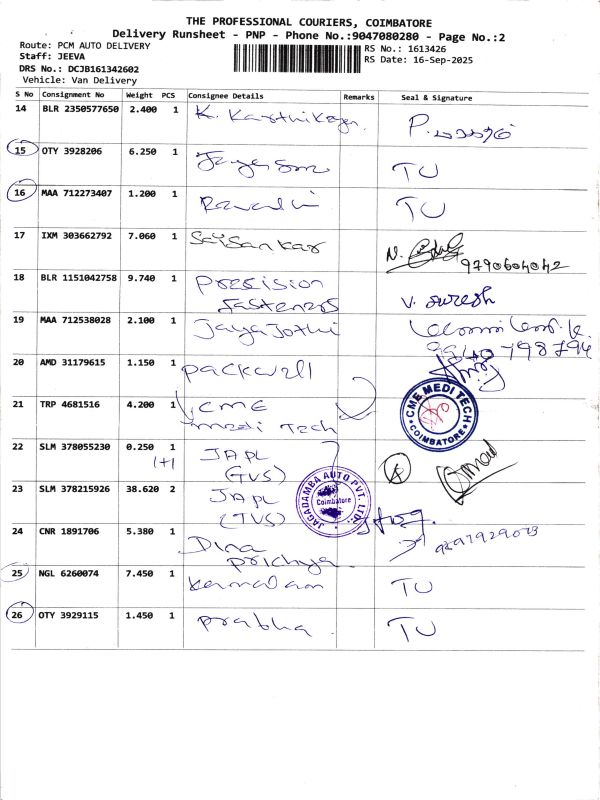 THE PROFESSIONAL COURIERS, COIMBATORE
Delivery Runsheet - PNP - Phone No.:9047080280 - Page No.:2
Route: PCM AUTO DELIVERY
RS No.: 1613426
Staff: JEEVA
RS Date: 16-Sep-2025
DRS No.: DCJB161342602
Vehicle: Van Delivery
S No Consignment No Weight PCS Consignee Details Remarks Seal & Signature
14 BLR 2350577650 2.400 1 K. Karthikeyan.
15 OTY 3928206 6.250 1 TU
16 MAA 712273407 1.200 1 TU
17 IXM 303662792 7.060 1 Saisankar N.
9790604042
18 BLR 1151042758 9.740 1 Precision
fasteners V. Suresh
19 MAA 712538028 2.100 1 Jaya Jothi
20 AMD 31179615 1.150 1 packwell
21 TRP 4681516 4.200 1 CME
medi Tech
CME MEDI TECH
COIMBATORE
22 SLM 378055230 0.250 1 JAPL
1+1 (TVS)
23 SLM 378215926 38.620 2 JAPL
(TVS)
JAGADAMBA AUTO PVT. LTD.
Coimbatore
24 CNR 1891706 5.380 1 Dina
25 NGL 6260074 7.450 1 TU
26 OTY 3929115 1.450 1 prabha. TU